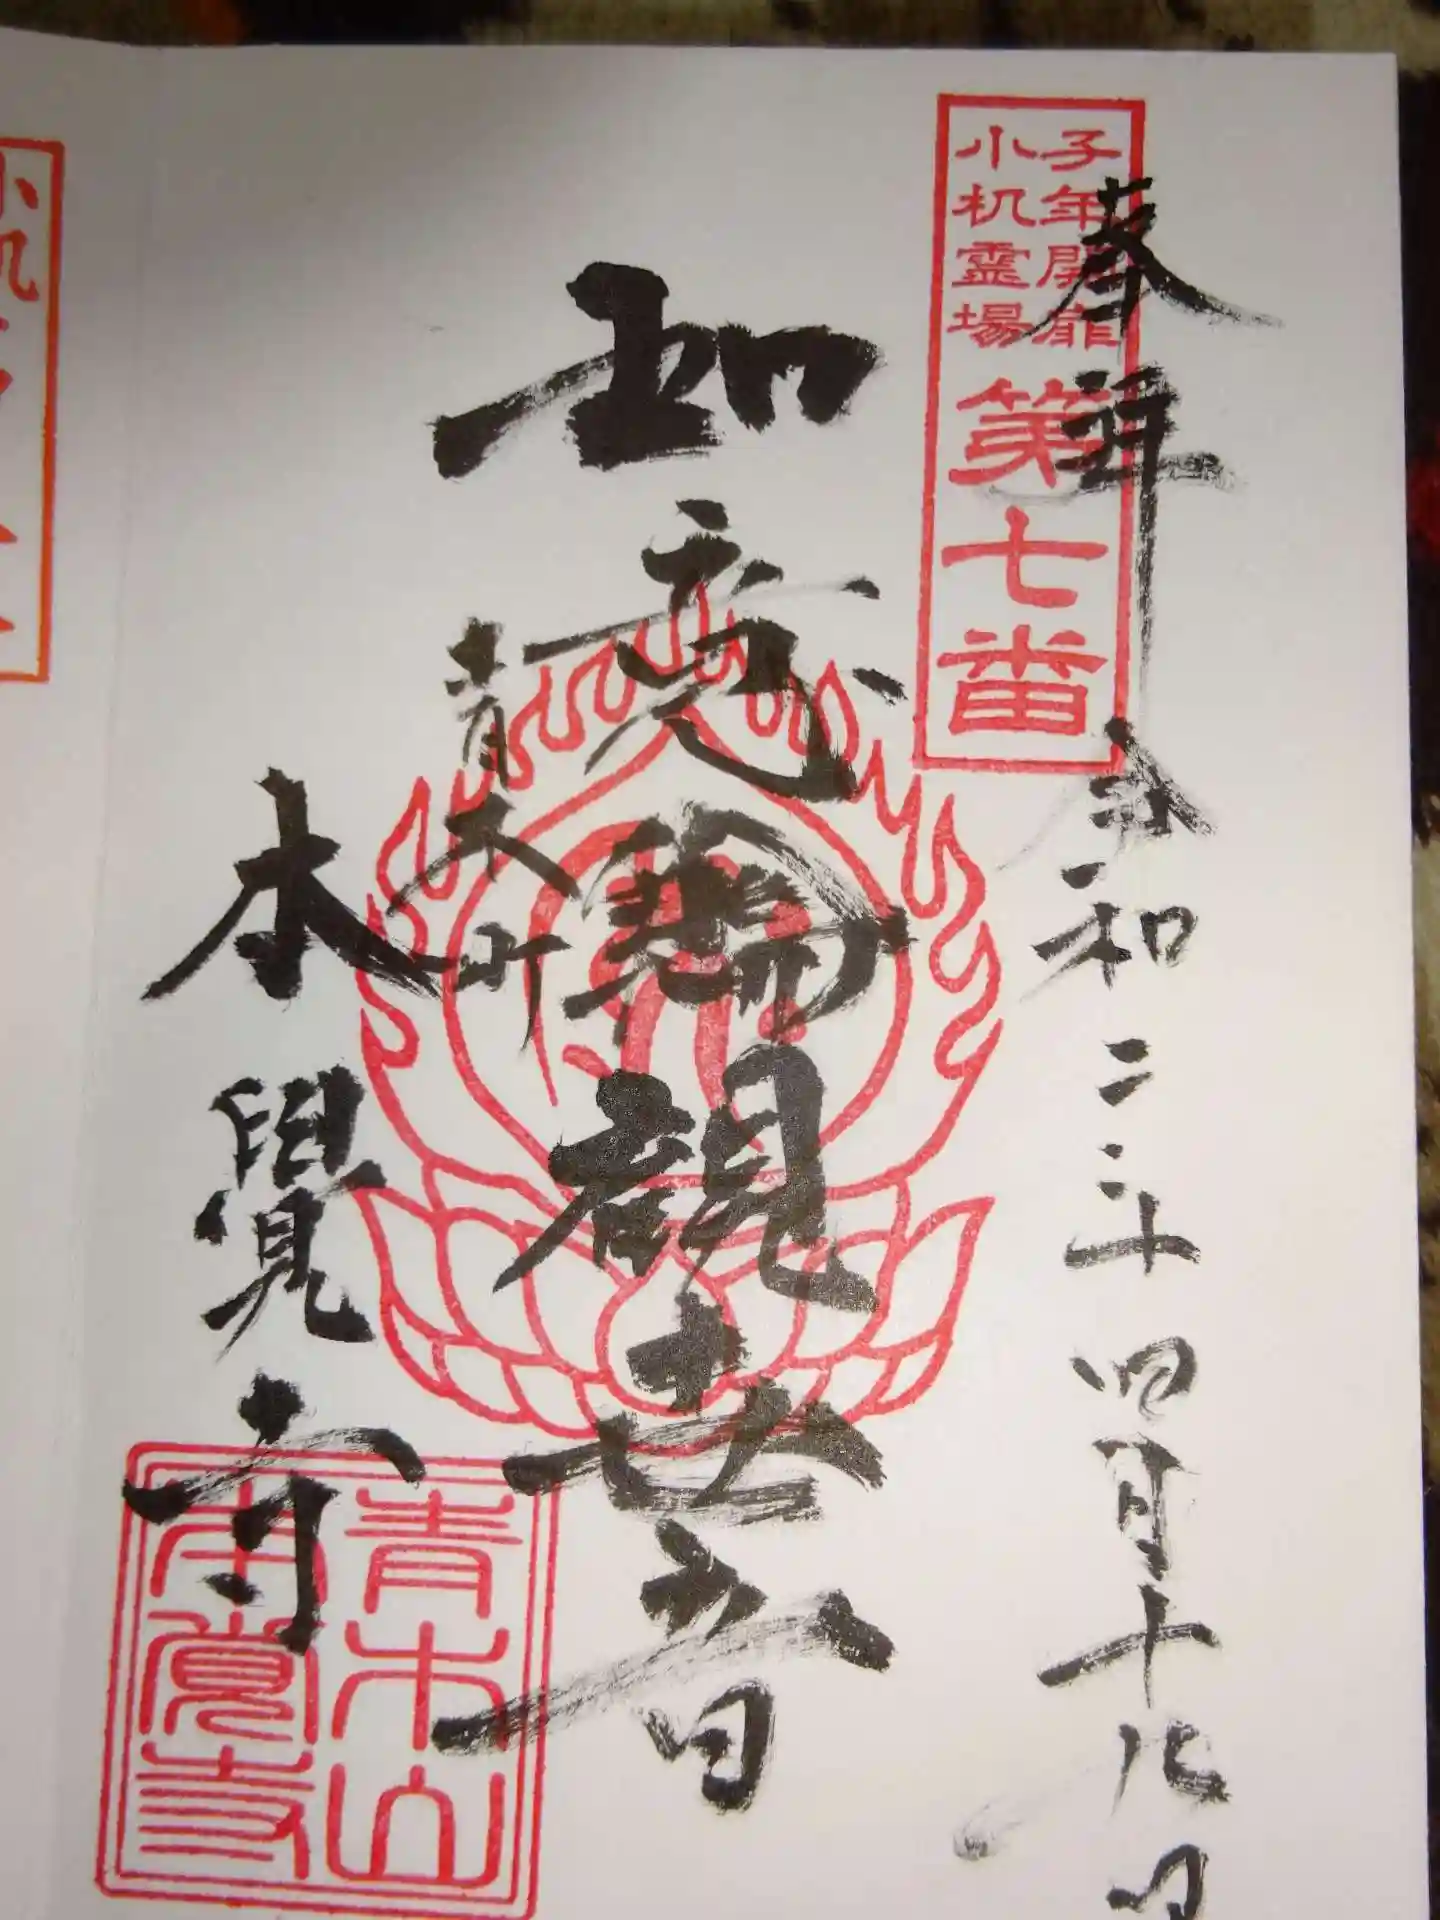 子年開扉
小机霊場
第七番
奉拝 令和二年四月十 日
如意輪観世音
青木町
本覺寺
青木山
本覚寺
小机